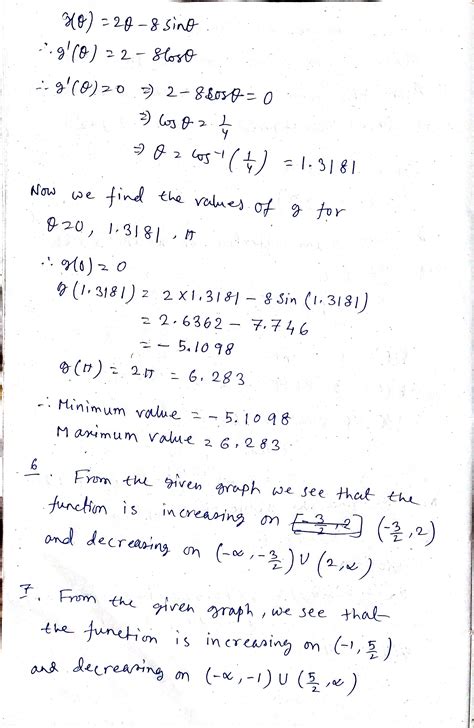 g(θ) = 2θ - 8 sinθ
∴ g'(θ) = 2 - 8cosθ
∴ g'(θ) = 0 ⇒ 2 - 8cosθ = 0
⇒ cosθ = 1/4
⇒ θ = cos⁻¹(1/4) = 1.3181
Now we find the values of g for
θ = 0, 1.3181, π
∴ g(0) = 0
g(1.3181) = 2×1.3181 - 8 sin(1.3181)
= 2.6362 - 7.746
= - 5.1098
g(π) = 2π = 6.283
∴ Minimum value = -5.1098
Maximum value = 6.283.
6. From the given graph we see that the
function is increasing on [-3/2, 2] (-3/2, 2)
and decreasing on (-∞, -3/2) ∪ (2, ∞)
7. From the given graph, we see that
the function is increasing on (-1, 5/2)
and decreasing on (-∞, -1) ∪ (5/2, ∞)